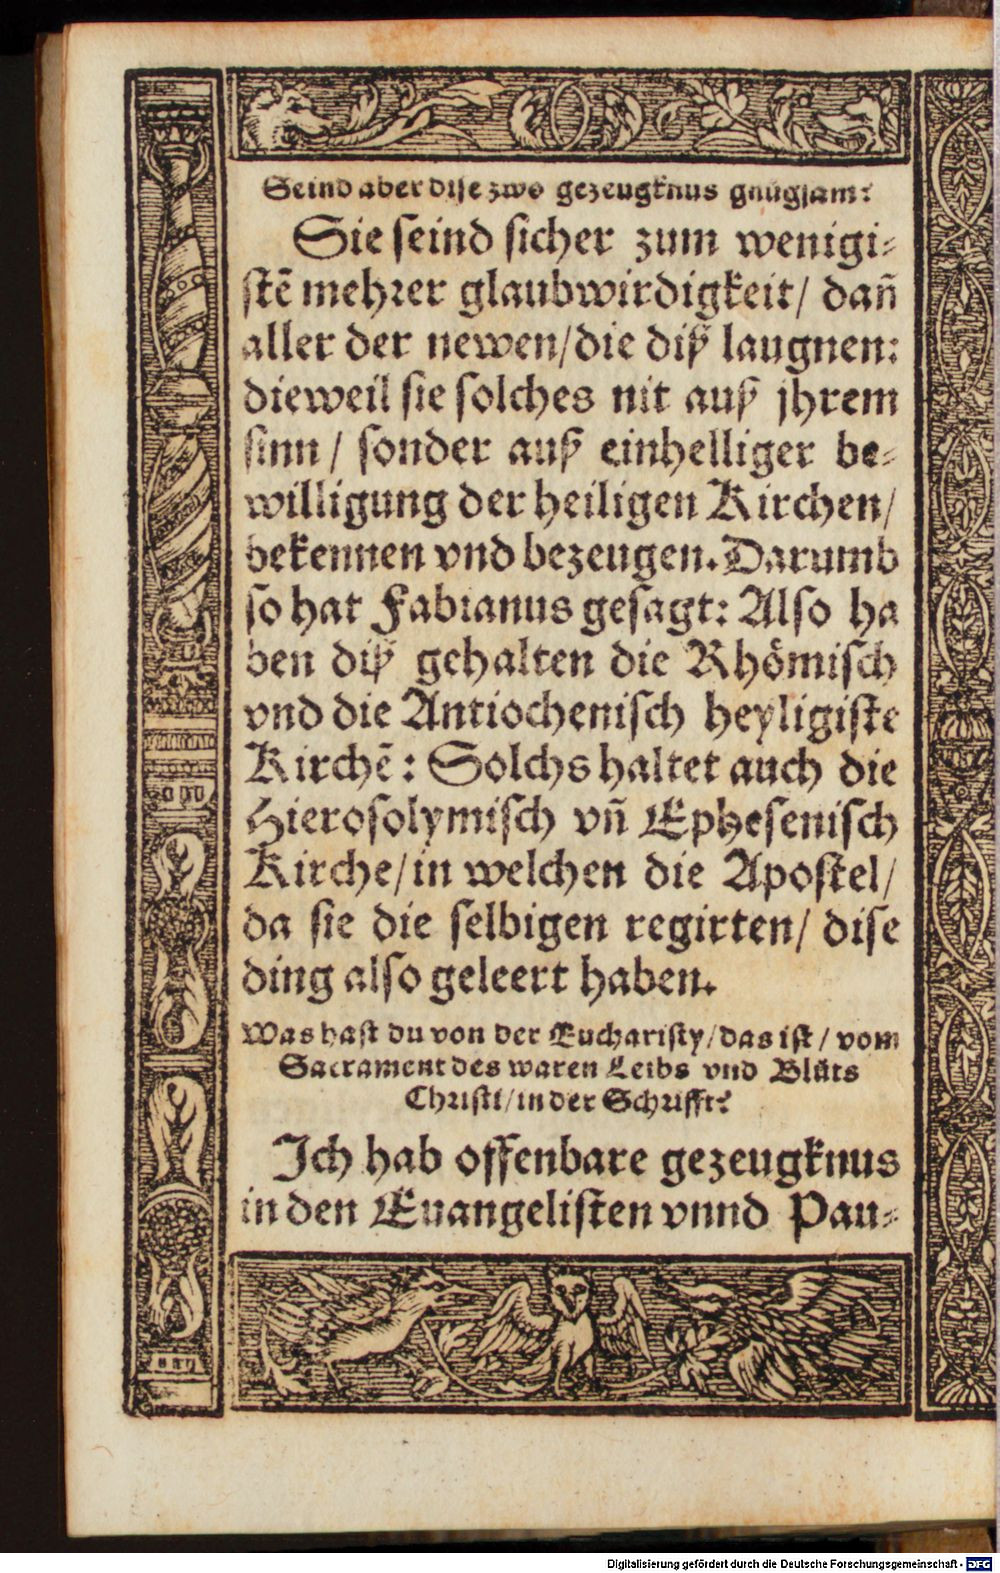 Seind aber dise zwo gezeugknus gnůgsam?
Sie seind sicher zum wenigi⸗
stē mehrer glaubwirdigkeit/ dañ
aller der newen/die diß laugnen:
dieweil sie solches nit auß jhrem
sinn / sonder auß einhelliger be⸗
willigung der heiligen Kirchen/
bekennen vnd bezeugen. Darumb
so hat Fabianus gesagt: Also ha
ben diß gehalten die Rhömisch
vnd die Antiochenisch heyligiste
Kirchē: Solchs haltet auch die
Hierosolymisch vñ Ephesenisch
Kirche/in welchen die Apostel/
da sie die selbigen regirten/ dise
ding also geleert haben.
Was hast du von der Eucharisty/das ist/ vom
Sacrament des waren Leibs vnd Blůts
Christi/in der Schrifft?
Ich hab offenbare gezeugknus
in den Euangelisten vnnd Pau⸗
Digitalisierung gefördert durch die Deutsche Forschungsgemeinschaft - DFG